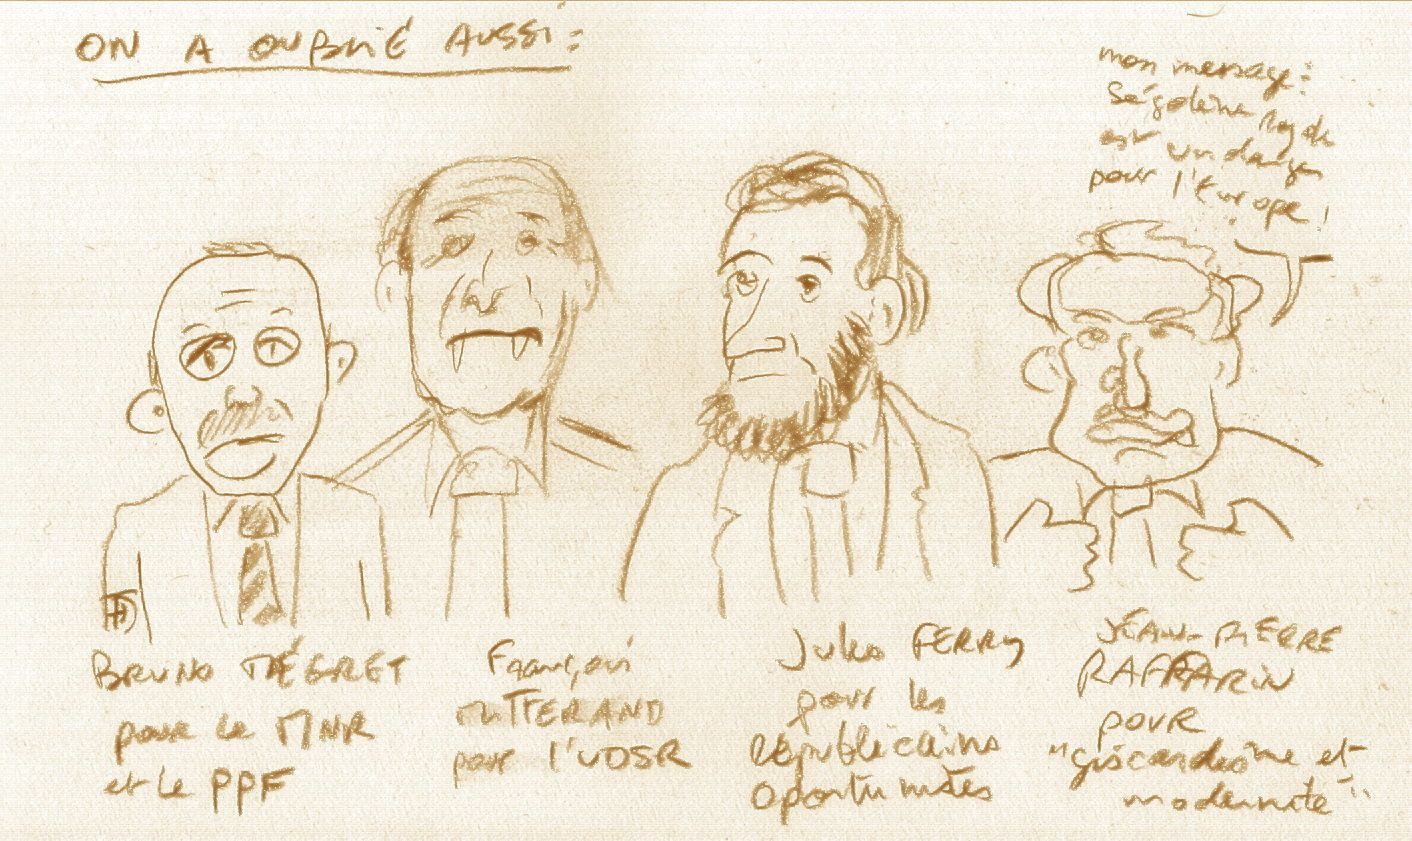 ON A OUBLIÉ AUSSI :
mon message :
Ségolène Royale
est un danger
pour l'Europe !
BRUNO MÉGRET
pour le MNR
et le PPF
François
MITTERAND
pour l'UDSR
Jules FERRY
pour les
républicains
opportunistes
JEAN-PIERRE
RAFFARIN
POUR
"giscardisme et
modernité"